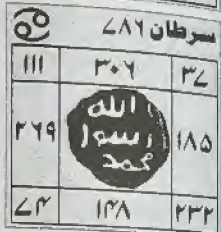 سرطان ۷۸۶ ♋
۳۷ ۳۰۶ ۱۱۱
۱۸۵ ۲۶۹
الله
رسول
محمد
۲۲۲ ۱۴۸ ۷۴